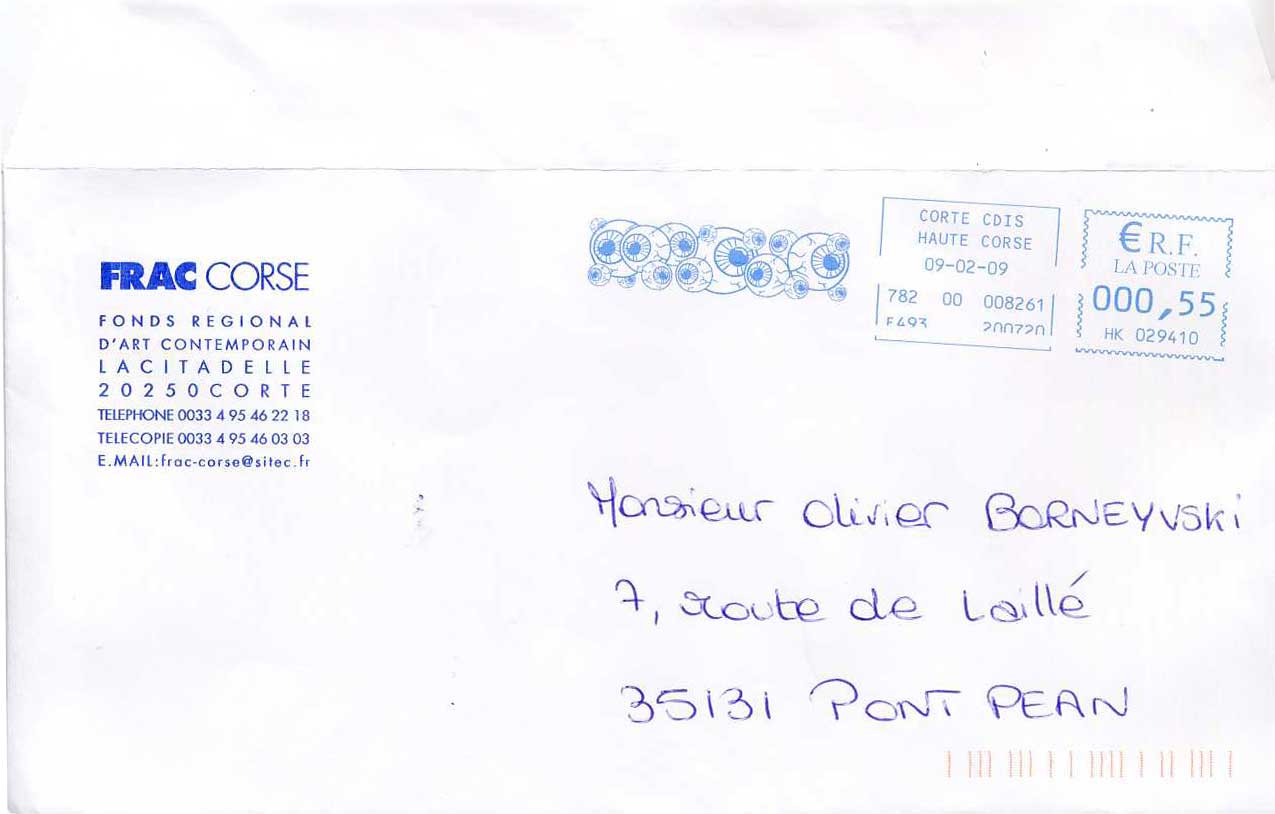 FRAC CORSE
FONDS REGIONAL
D'ART CONTEMPORAIN
LA CITADELLE
20250 CORTE
TELEPHONE 0033 4 95 46 22 18
TELECOPIE 0033 4 95 46 03 03
E.MAIL:frac-corse@sitec.fr
CORTE CDIS
HAUTE CORSE
09-02-09
782 00 008261
€ R.F.
LA POSTE
000,55
HK 029410
Monsieur Olivier BORNEYVSKi
7, route de Laillé
35131 PONT PEAN